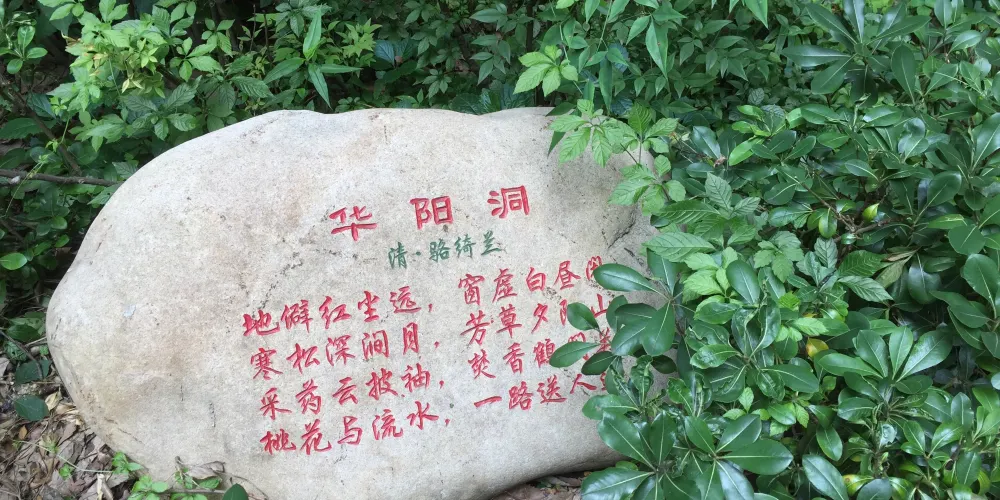 华阳洞
清·骆绮兰
地僻红尘远，窗虚白昼闲
寒松深涧月，芳草夕阳山
采药云披袖，焚香鹤
桃花与流水，一路送人